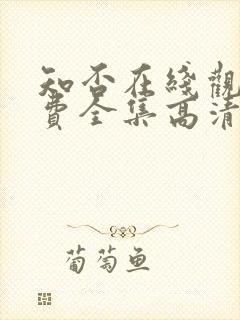 知否在綫觀
費全集高清
葡萄鱼